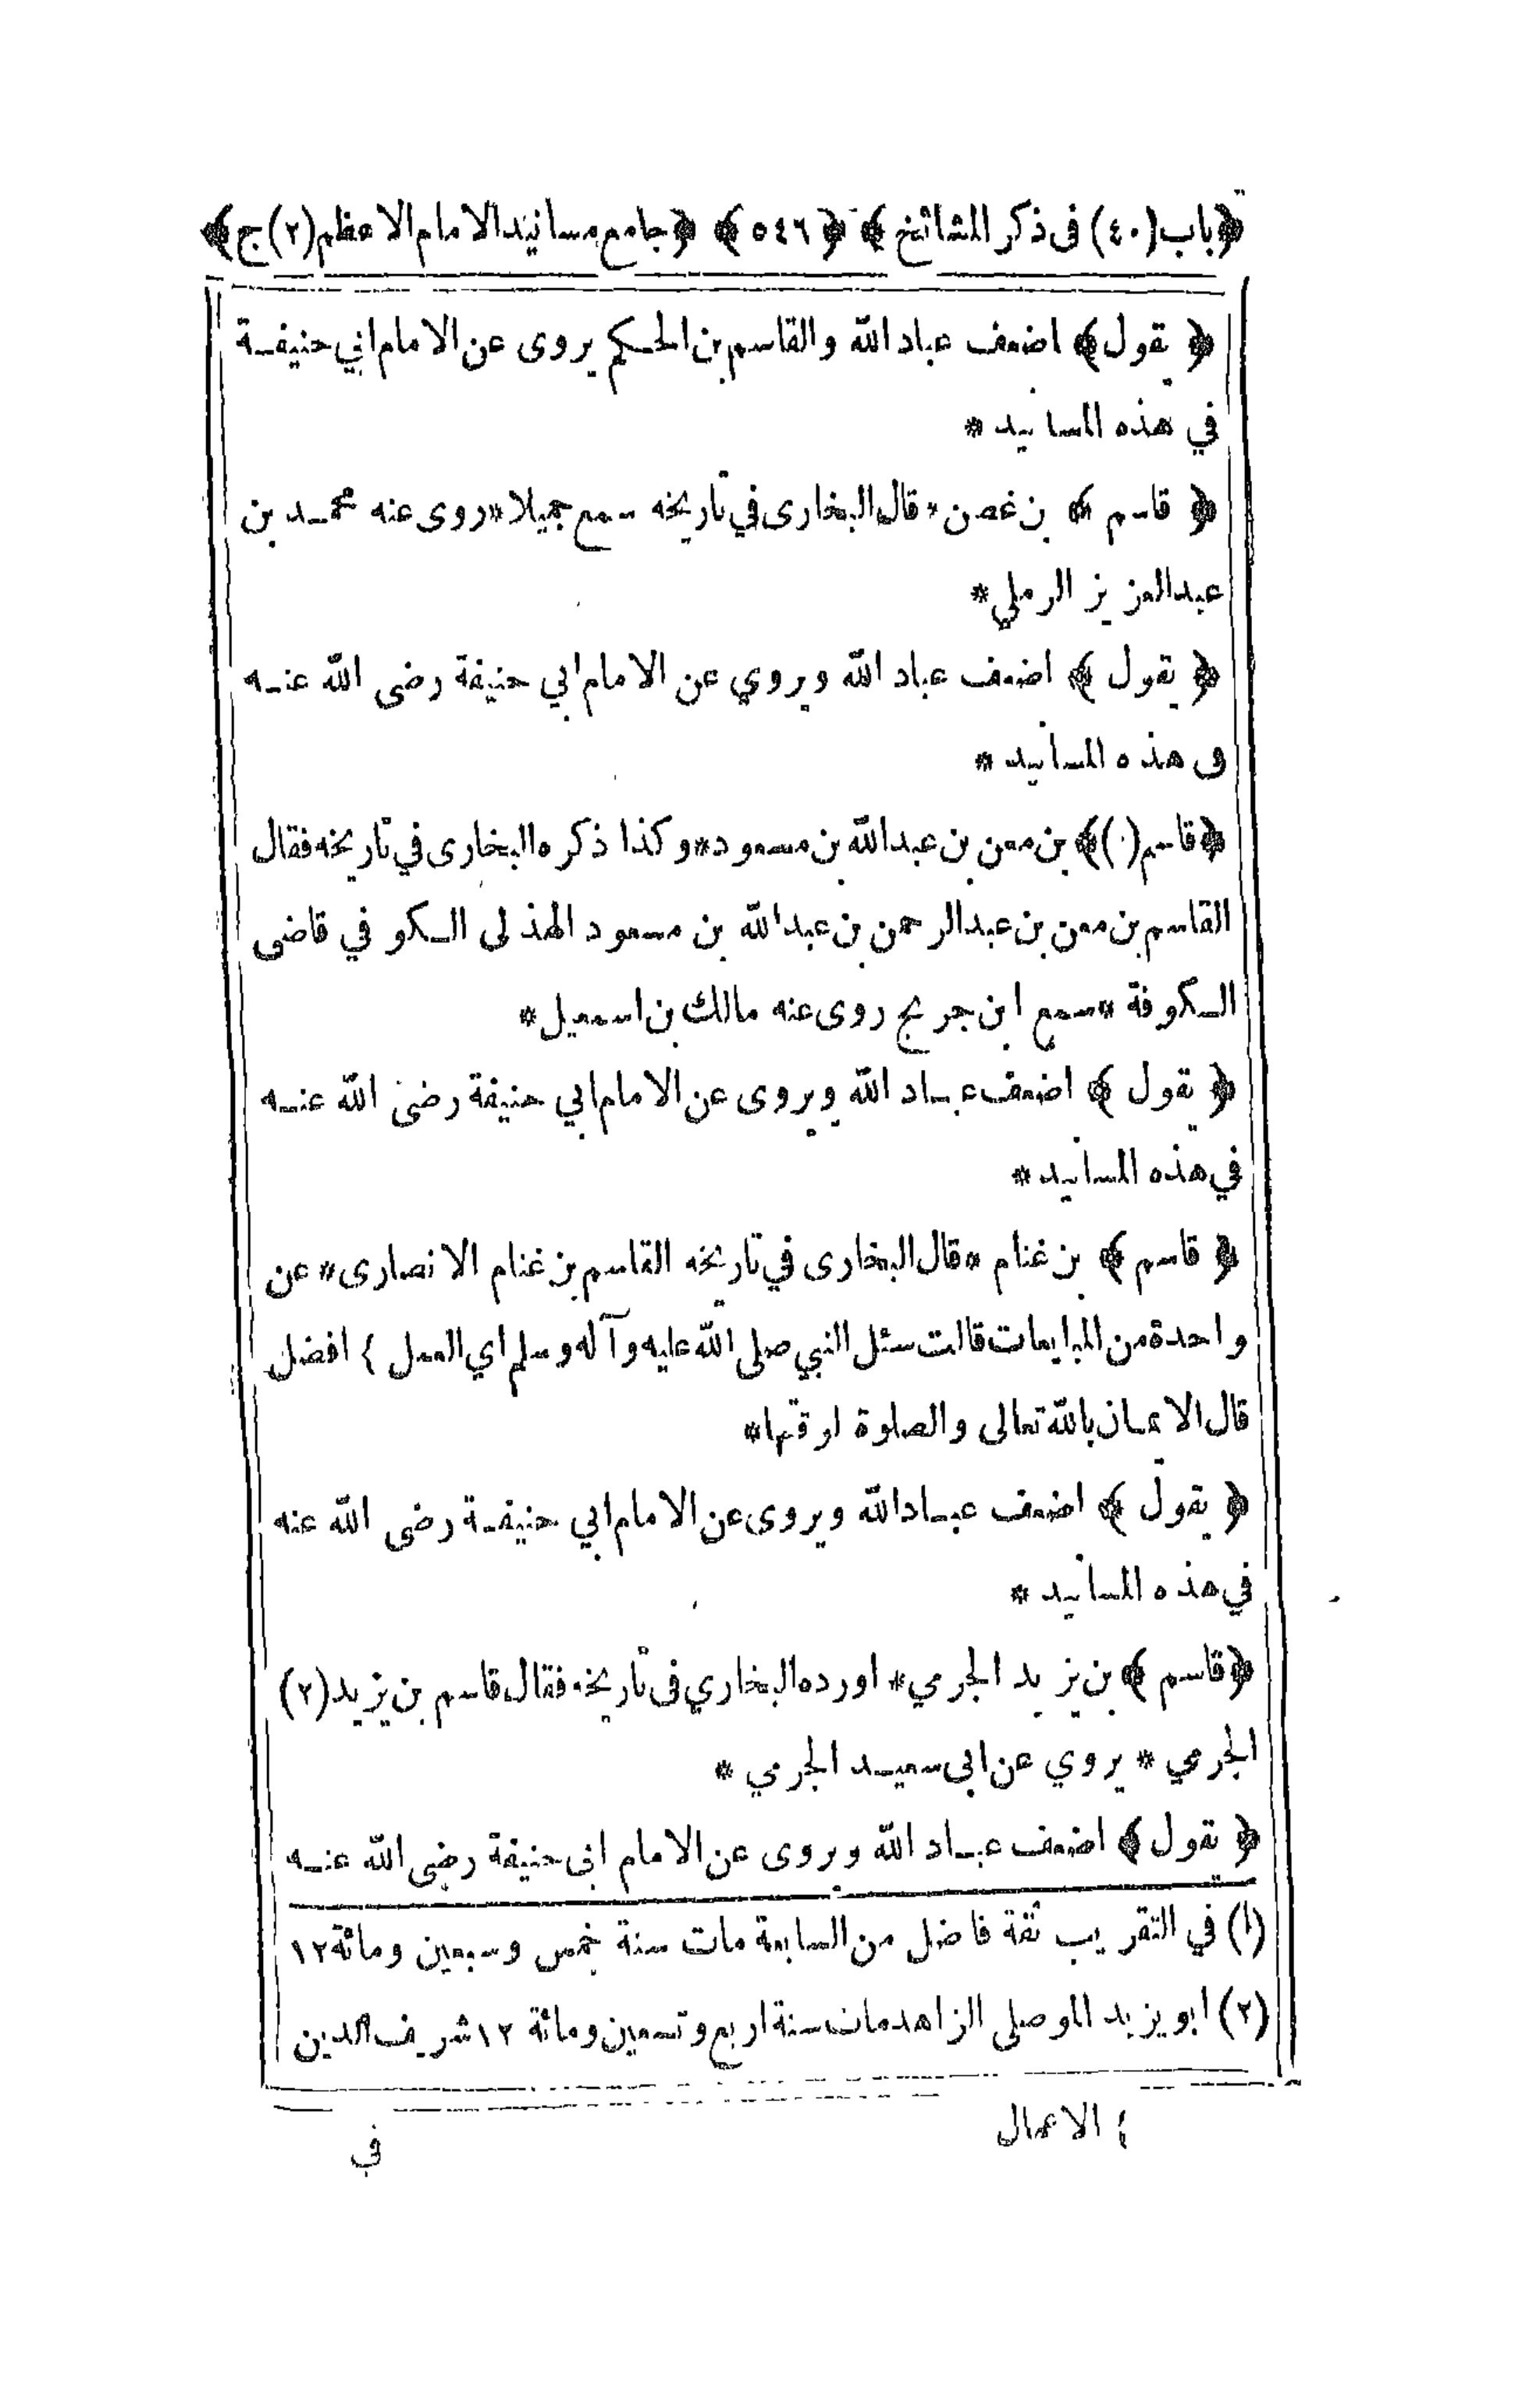 ﴿باب(٤٠) فى ذكر المشائخ﴾ ﴿٥٤٦﴾ ﴿جامع مسانيد الامام الاعظم(٢)ج﴾
﴿يقول﴾ اضعف عباد الله والقاسم بن الحكم يروى عن الامام ابي حنيفة
في هذه المسانيد *
﴿قاسم﴾ بن غصن * قال البخارى في تاريخه سمع جميلا * روى عنه محمد بن
عبد العزيز الرملي *
﴿يقول﴾ اضعف عباد الله ويروي عن الامام ابي حنيفة رضى الله عنه
فى هذه المسانيد *
﴿قاسم(١)﴾ بن معن بن عبد الله بن مسعود * وكذا ذكره البخارى في تاريخه فقال
القاسم بن معن بن عبد الرحمن بن عبد الله بن مسعود الهذلى الكوفي قاضى
الكوفة * سمع ابن جريج روى عنه مالك بن اسمعيل *
﴿يقول﴾ اضعف عباد الله ويروى عن الامام ابي حنيفة رضى الله عنه
في هذه المسانيد *
﴿قاسم﴾ بن غنام * قال البخارى في تاريخه القاسم بن غنام الانصارى * عن
واحدة من المبايعات قالت سئل النبي صلى الله عليه وآله وسلم اي العمل } افضل
قال الايمان بالله تعالى والصلوة لوقتها *
﴿يقول﴾ اضعف عباد الله ويروى عن الامام ابي حنيفة رضى الله عنه
في هذه المسانيد *
﴿قاسم﴾ بن يزيد الجرمي * اورده البخاري فى تاريخه فقال قاسم بن يزيد(٢)
الجرمي * يروي عن ابى سعيد الجرمي *
﴿يقول﴾ اضعف عباد الله ويروى عن الامام ابى حنيفة رضى الله عنه
(١) في التقريب ثقة فاضل من السابعة مات سنة خمس وسبعين ومائة ١٢
(٢) ابو يزيد الموصلى الزاهد مات سنة اربع وتسعين ومائة ١٢ شريف الدين
} الاعمال
في